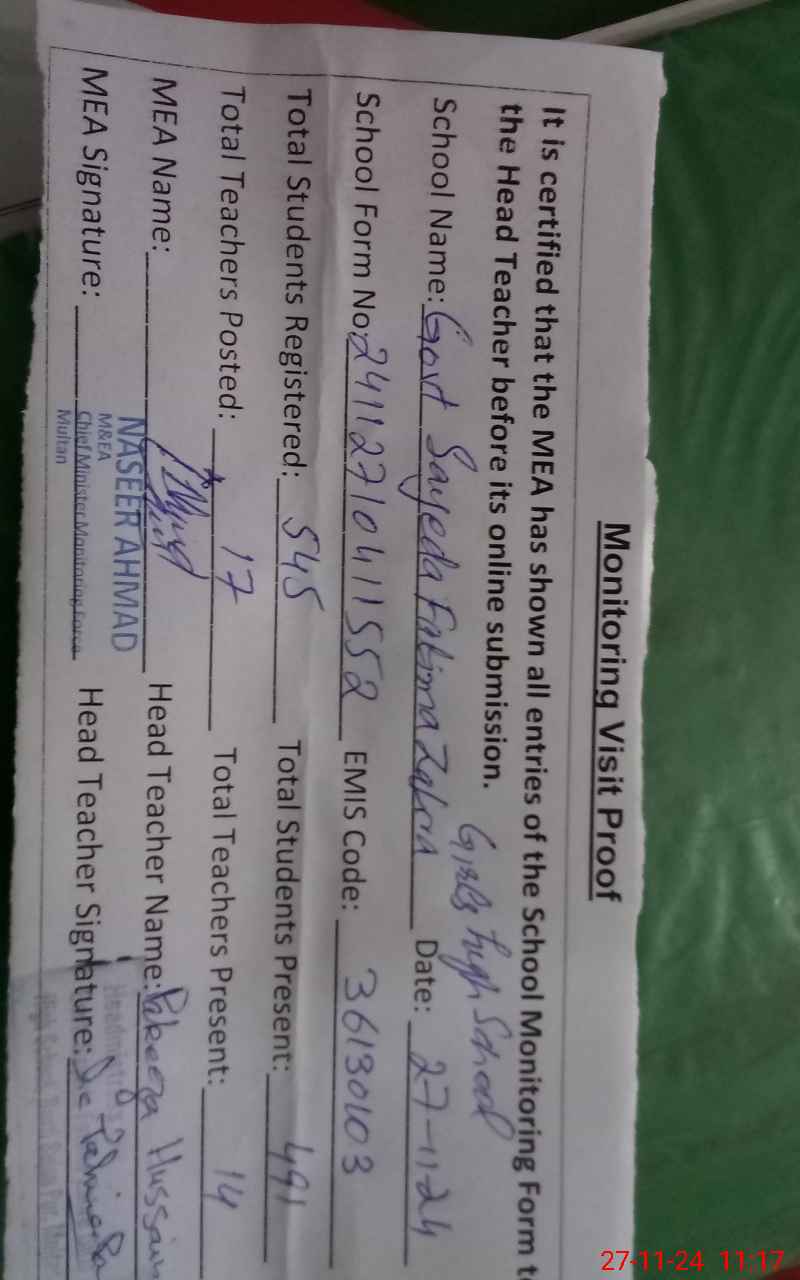 Monitoring Visit Proof
It is certified that the MEA has shown all entries of the School Monitoring Form t
the Head Teacher before its online submission.
Girls high School
School Name: Govt Sayeda Fatima Zahra Date: 27-11-24
School Form No: 24112710411552 EMIS Code: 36130103
Total Students Registered: 545 Total Students Present: 491
Total Teachers Posted: 17 Total Teachers Present: 14
MEA Name: Head Teacher Name: Pakeeza Hussain
NASEER AHMAD
M&EA
MEA Signature: Chief Minister Monitoring Force Head Teacher Signature:
Multan
27-11-24 11:17